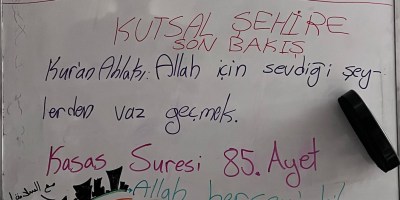 KUTSAL ŞEHİRE
SON BAKIŞ
Kur'an Ahlakı: Allah için sevdiği şey-
lerden vaz geçmek.
Kasas Suresi 85. Ayet
Allah